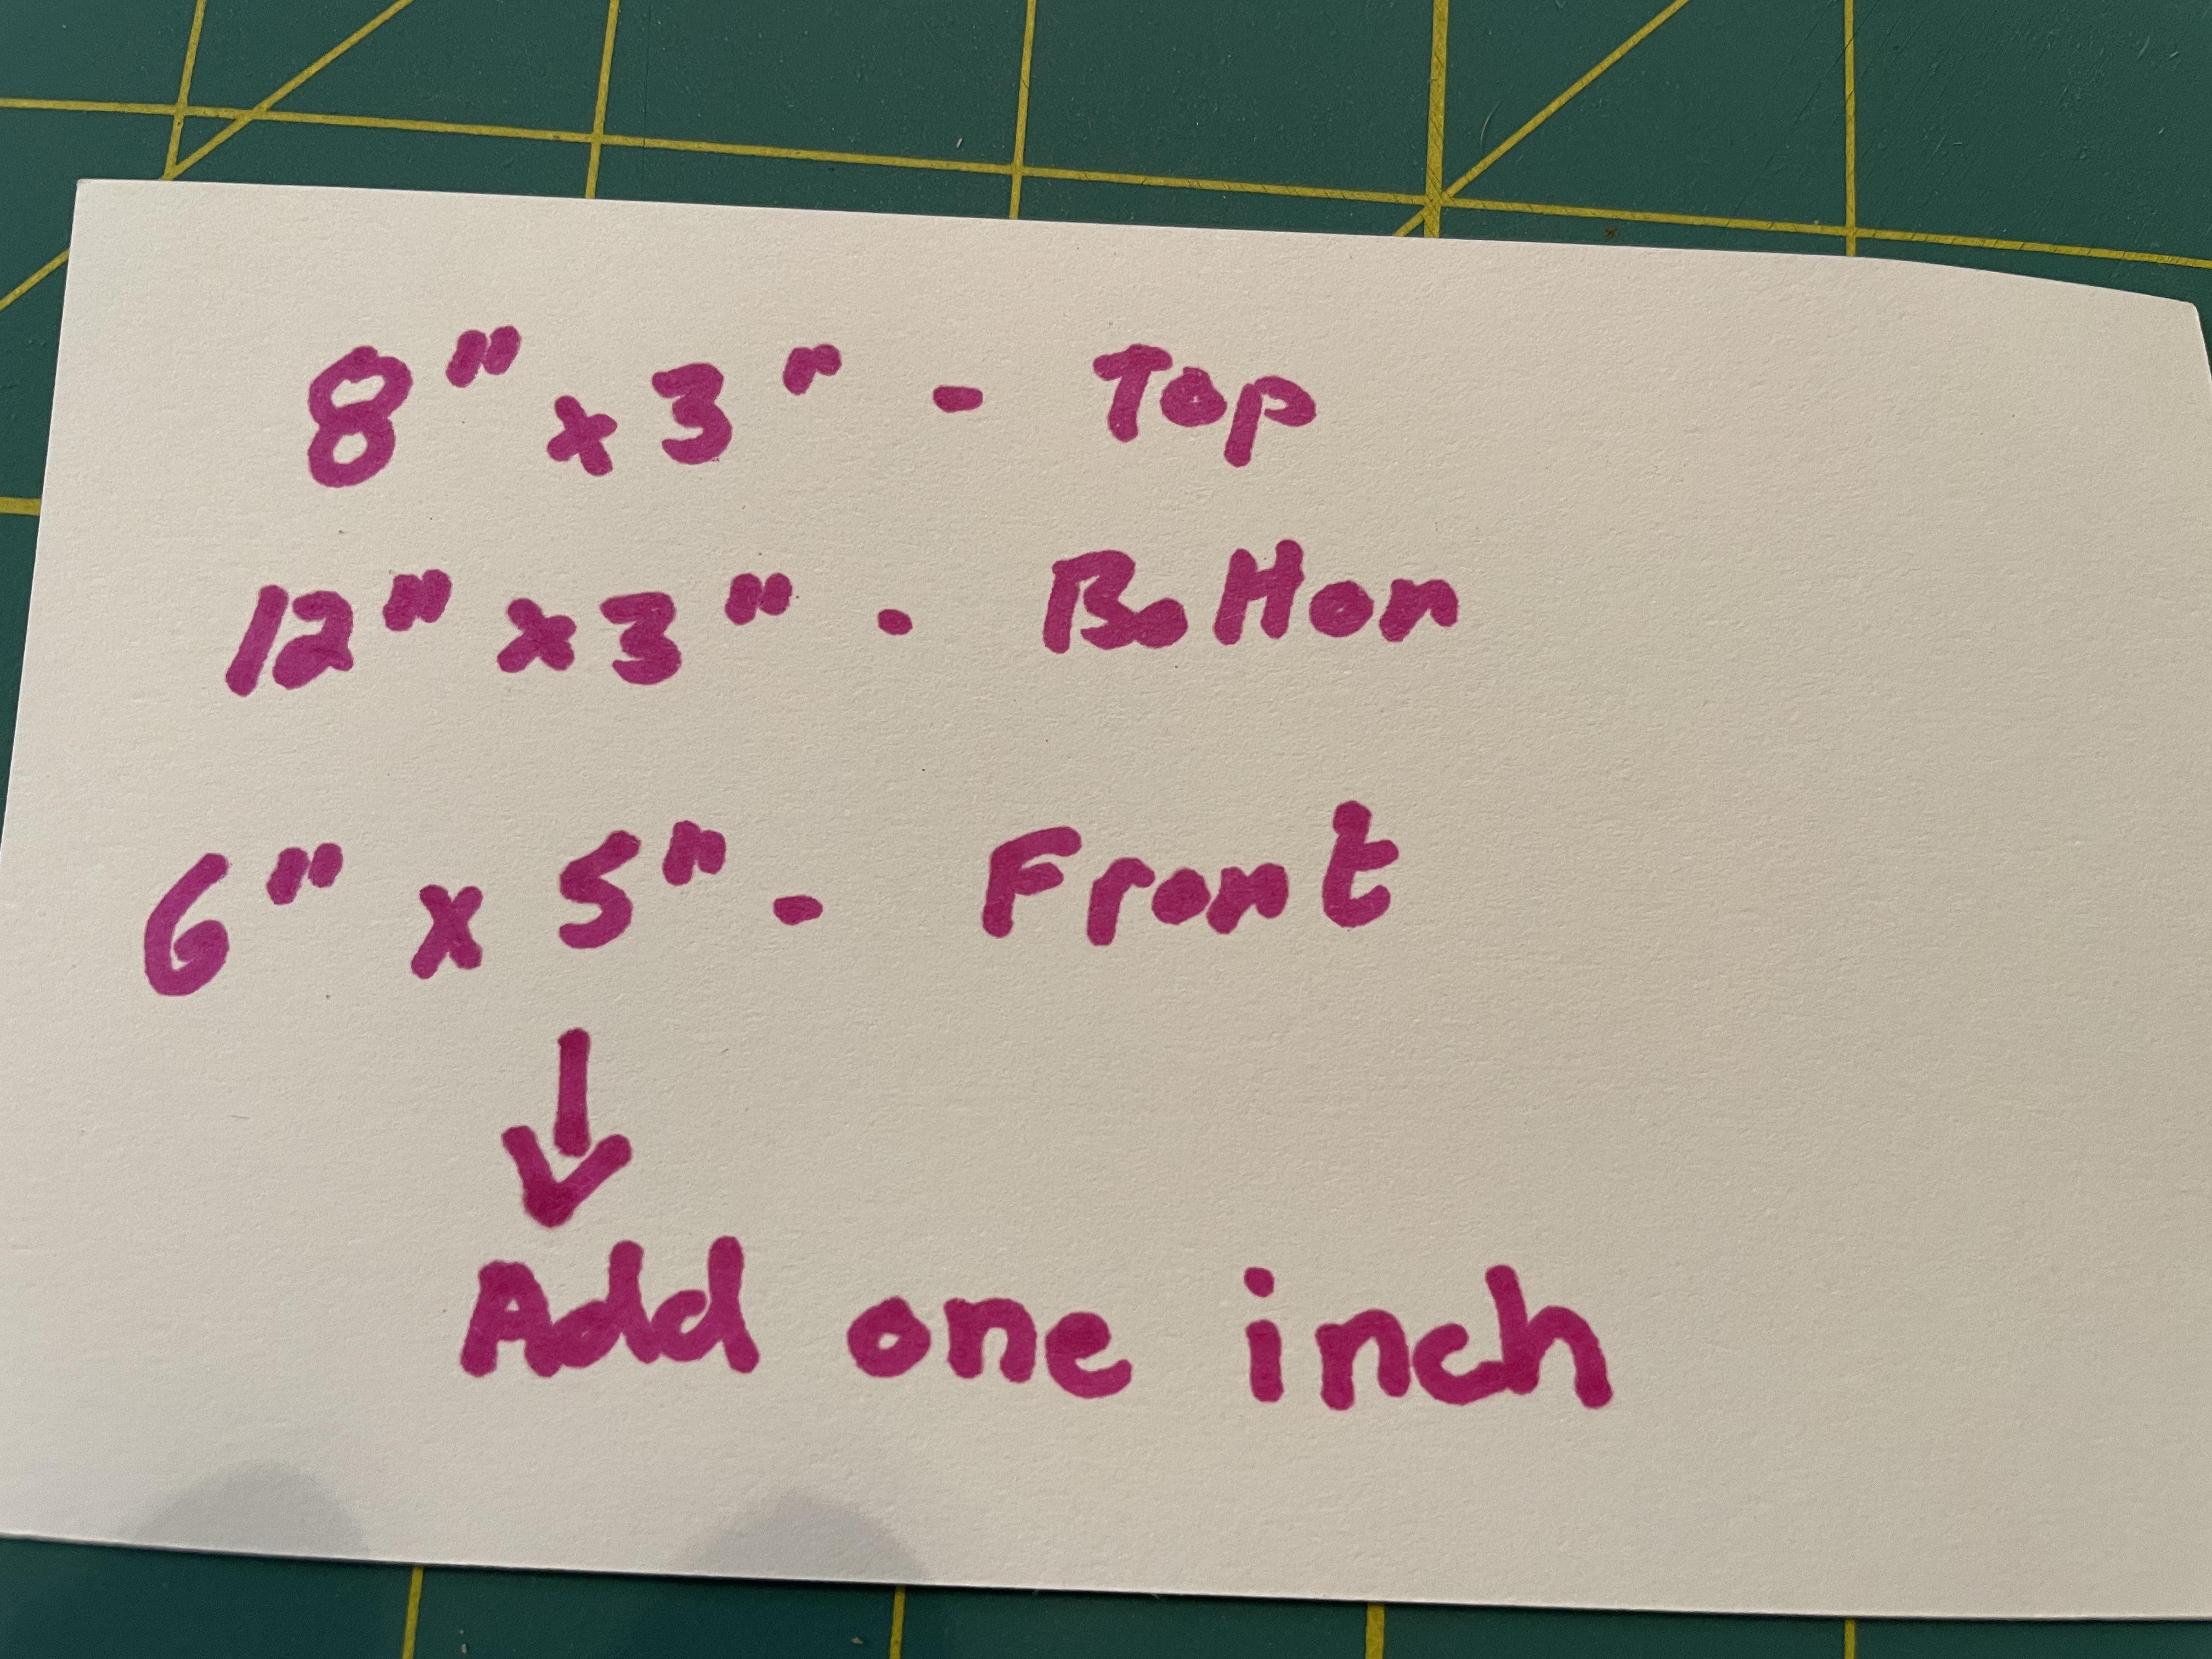 8" x 3" - Top
12" x 3" - Bottom
6" x 5" - Front
↓
Add one inch